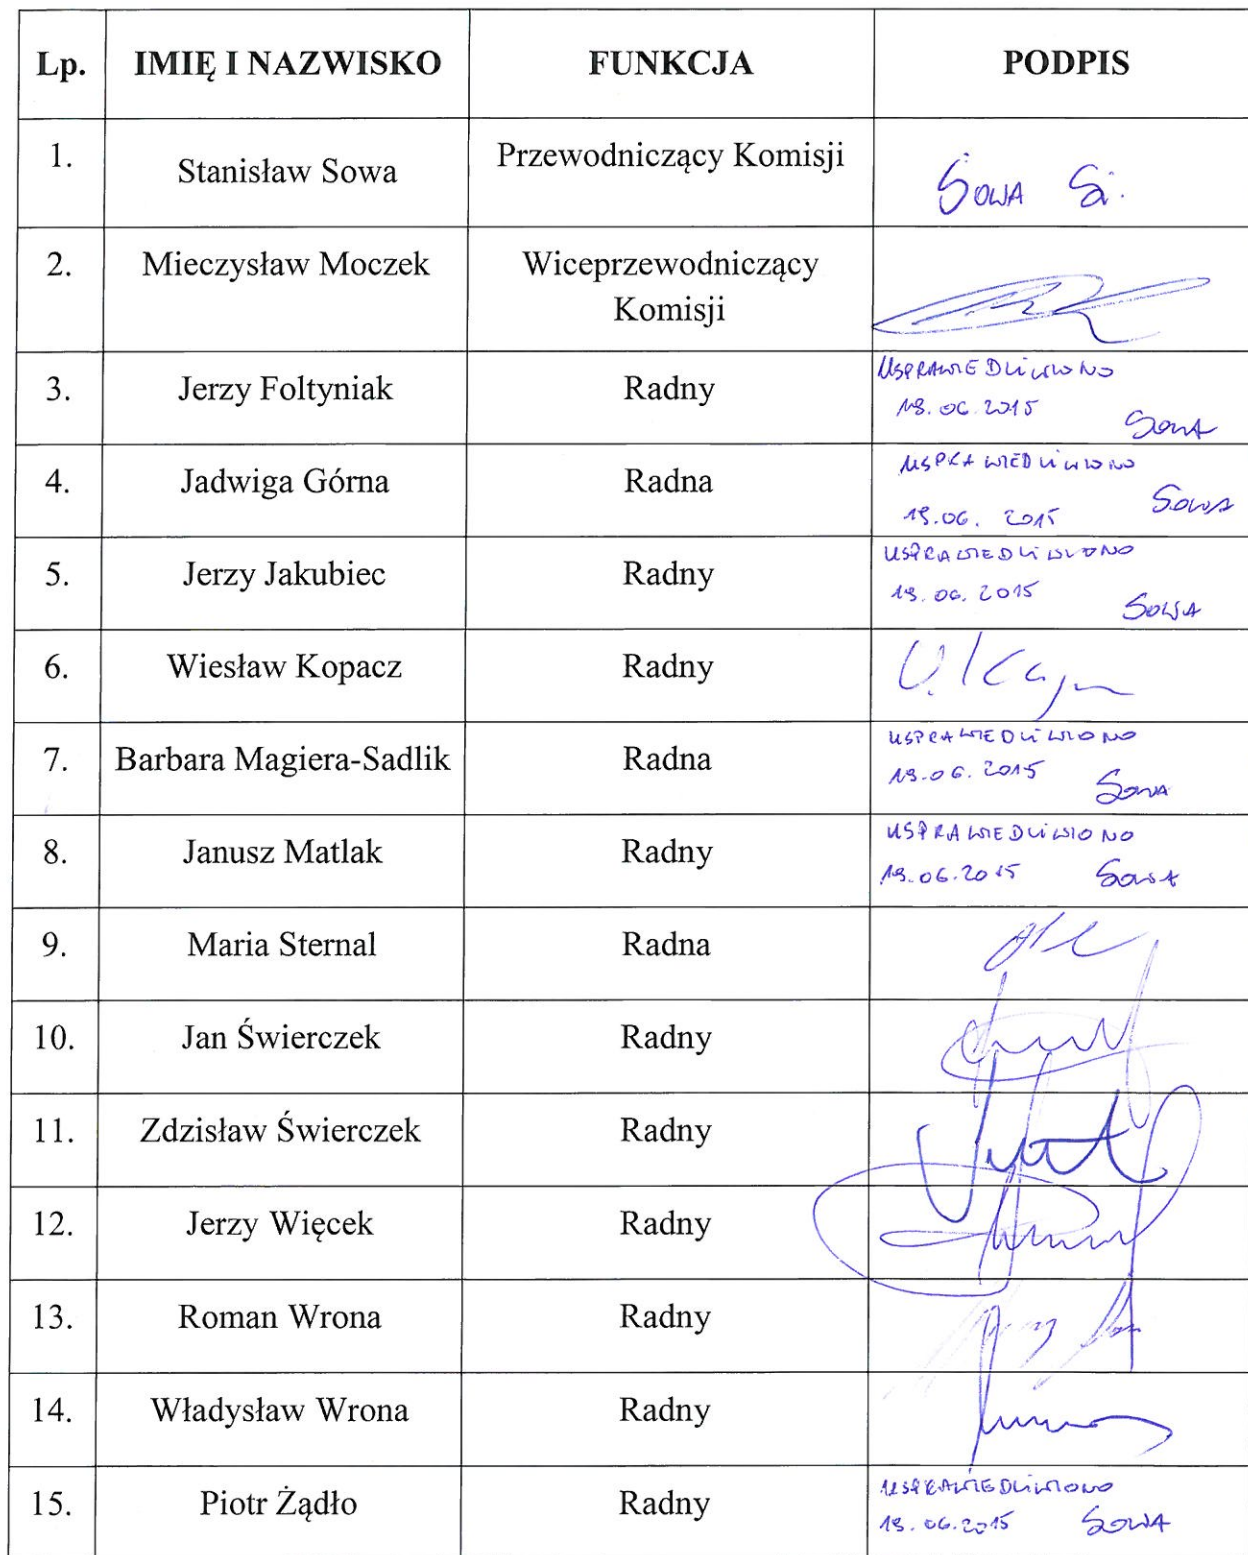 Lp. IMIĘ I NAZWISKO FUNKCJA PODPIS
1. Stanisław Sowa Przewodniczący Komisji SOWA
2. Mieczysław Moczek Wiceprzewodniczący
Komisji
3. Jerzy Foltyniak Radny USPRAWIEDLIWIONO
19.06.2015 SOWA
4. Jadwiga Górna Radna USPRAWIEDLIWIONO
19.06.2015 SOWA
5. Jerzy Jakubiec Radny USPRAWIEDLIWIONO
19.06.2015 SOWA
6. Wiesław Kopacz Radny
7. Barbara Magiera-Sadlik Radna USPRAWIEDLIWIONO
19.06.2015 SOWA
8. Janusz Matlak Radny USPRAWIEDLIWIONO
19.06.2015 SOWA
9. Maria Sternal Radna
10. Jan Świerczek Radny
11. Zdzisław Świerczek Radny
12. Jerzy Więcek Radny
13. Roman Wrona Radny
14. Władysław Wrona Radny
15. Piotr Żądło Radny USPRAWIEDLIWIONO
19.06.2015 SOWA